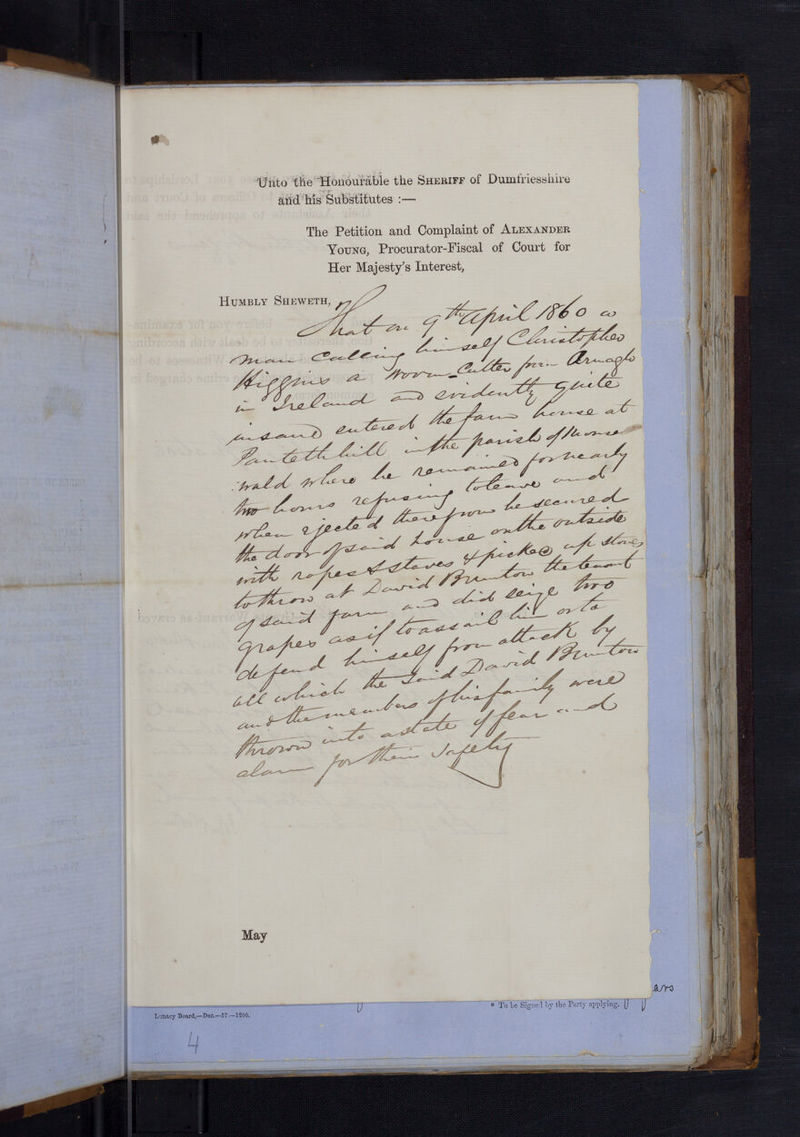 Unto the Honourable the SHERIFF of Dumfriesshire
and his Substitutes :—
The Petition and Complaint of ALEXANDER
YOUNG, Procurator-Fiscal of Court for
Her Majesty's Interest,
HUMBLY SHEWETH,
That on 9th April 1860 a
man calling himself Christopher
Higgins a Worm Cutter from Armagh
in Ireland and evidently quite
insane entered the farm house at
Panteth hill in the parish of Mous
wald where he remained for nearly
two hours refusing to leave and
when ejected therefrom he secured
the door of said house on the outside
with ropes & staves & picked up stones
to throw at David Brunton the tenant
of said farm and did seize two
grapes as if to assail him or to
defend himself from attack by
all which the said David Brunton
and the members of his family were
thrown into a state of fear and
alarm for their safety
May
ars
* To be Signed by the Party applying.
Lunacy Board,—Den.—57.—1200.
4